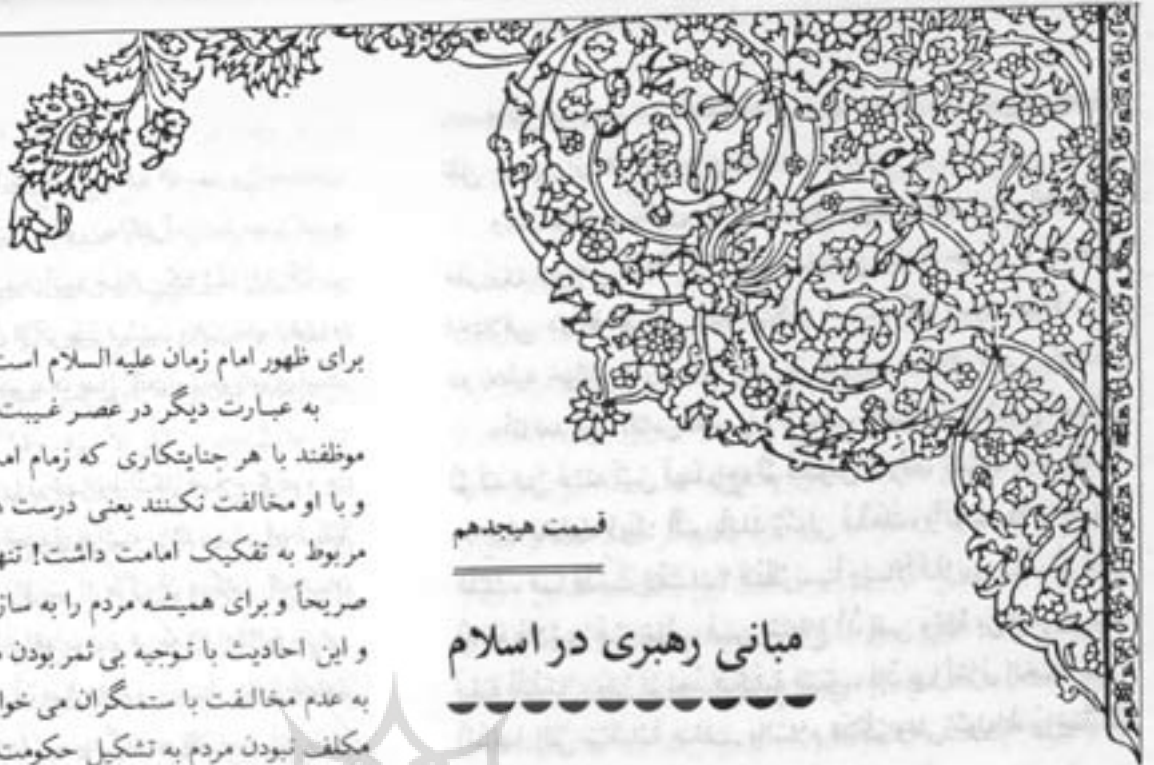 قسمت هیجدهم
مبانی رهبری در اسلام
برای ظهور امام زمان علیه‌السلام است
به عبارت دیگر در عصر غیبت
موظفند با هر جنایتکاری که زمام ام
و با او مخالفت نکنند یعنی درست
مربوط به تفکیک امامت داشت! تنه
صریحاً و برای همیشه مردم را به ساز
و این احادیث با توجیه بی ثمر بودن
به عدم مخالفت با ستمگران می خوا
مکلف نبودن مردم به تشکیل حکومت